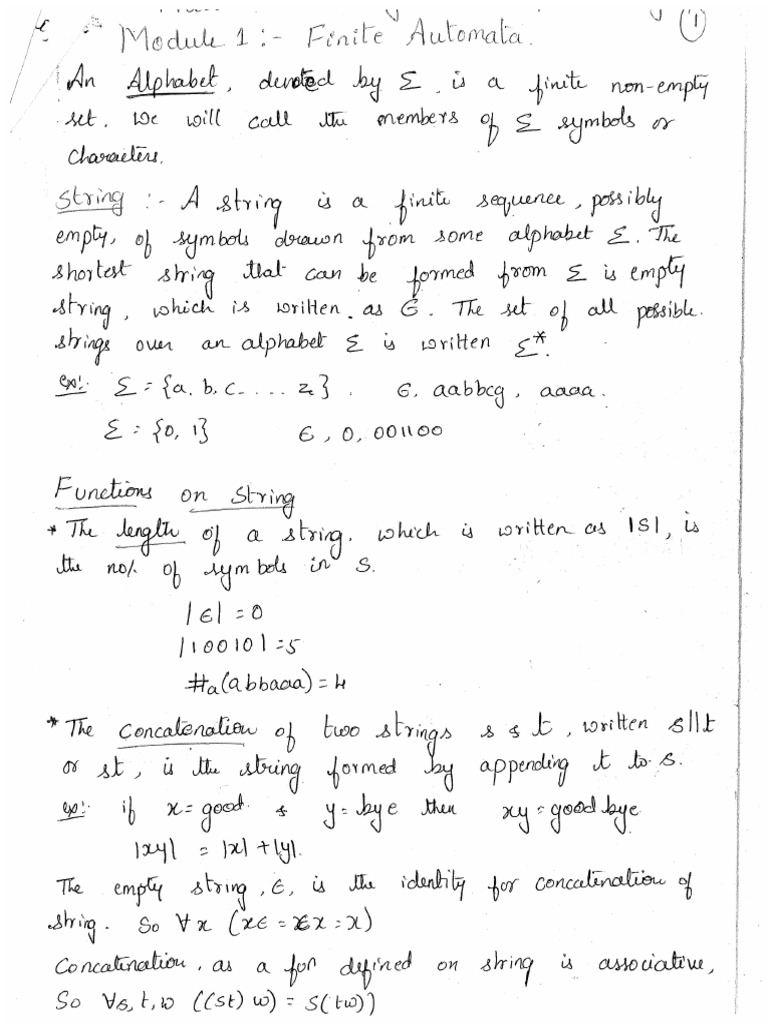 1
Module 1 :- Finite Automata.
An Alphabet, denoted by Σ. is a finite non-empty
set. We will call the members of Σ symbols or
Characters.
String :- A string is a finite sequence, possibly
empty, of symbols drawn from some alphabet Σ. The
shortest string that can be formed from Σ is empty
string, which is written as ϵ. The set of all possible.
strings over an alphabet Σ is written Σ*.
ex:. Σ = {a. b. c. .... z} . ϵ, aabbcg, aaaa.
Σ = {0, 1} ϵ, 0, 001100
Functions on String
* The length of a string. which is written as |S|, is
the no/. of symbols in S.
|ϵ| = 0
|10010| = 5
#a(abbaaa) = 4
* The Concatenation of two strings s & t, written s||t
or st, is the string formed by appending t to s.
ex:. if x = good & y = bye then xy = goodbye
|xy| = |x| + |y|.
The empty string, ϵ, is the identity for concatenation of
string. So ∀x (xϵ = ϵx = x)
Concatination, as a fun defined on string is associative,
So ∀s, t, w ((st) w) = S(tw))